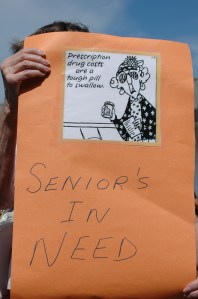 Prescription
drug costs
are a
tough pill
to swallow.
SENIOR'S
IN
NEED